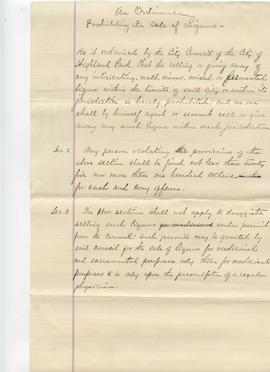 An Ordinance
Prohibiting the Sale of Liquors -
Be it ordained by the City Council of the City of
Highland Park, that the selling or giving away of
any intoxicating, malt, vinous, mixed or fermented
liquor within the limits of said city, or within its
jurisdiction is hereby prohibited: and no one
shall by himself agent or servant sell or give
away any such liquor within such jurisdiction
Sec 2 Any person violating the provisions of the
above section shall be fined not less than twenty
five nor more than one hundred dollars
for each and every offence.
Sec 3 The above sections shall not apply to druggists
selling such liquors for medicinal under permit
from the Council: such permits may be granted by
said council for the sale of liquors for medicinal
and sacramental purposes only those for medicinal
purposes to be only upon the prescription of a regular
physician.